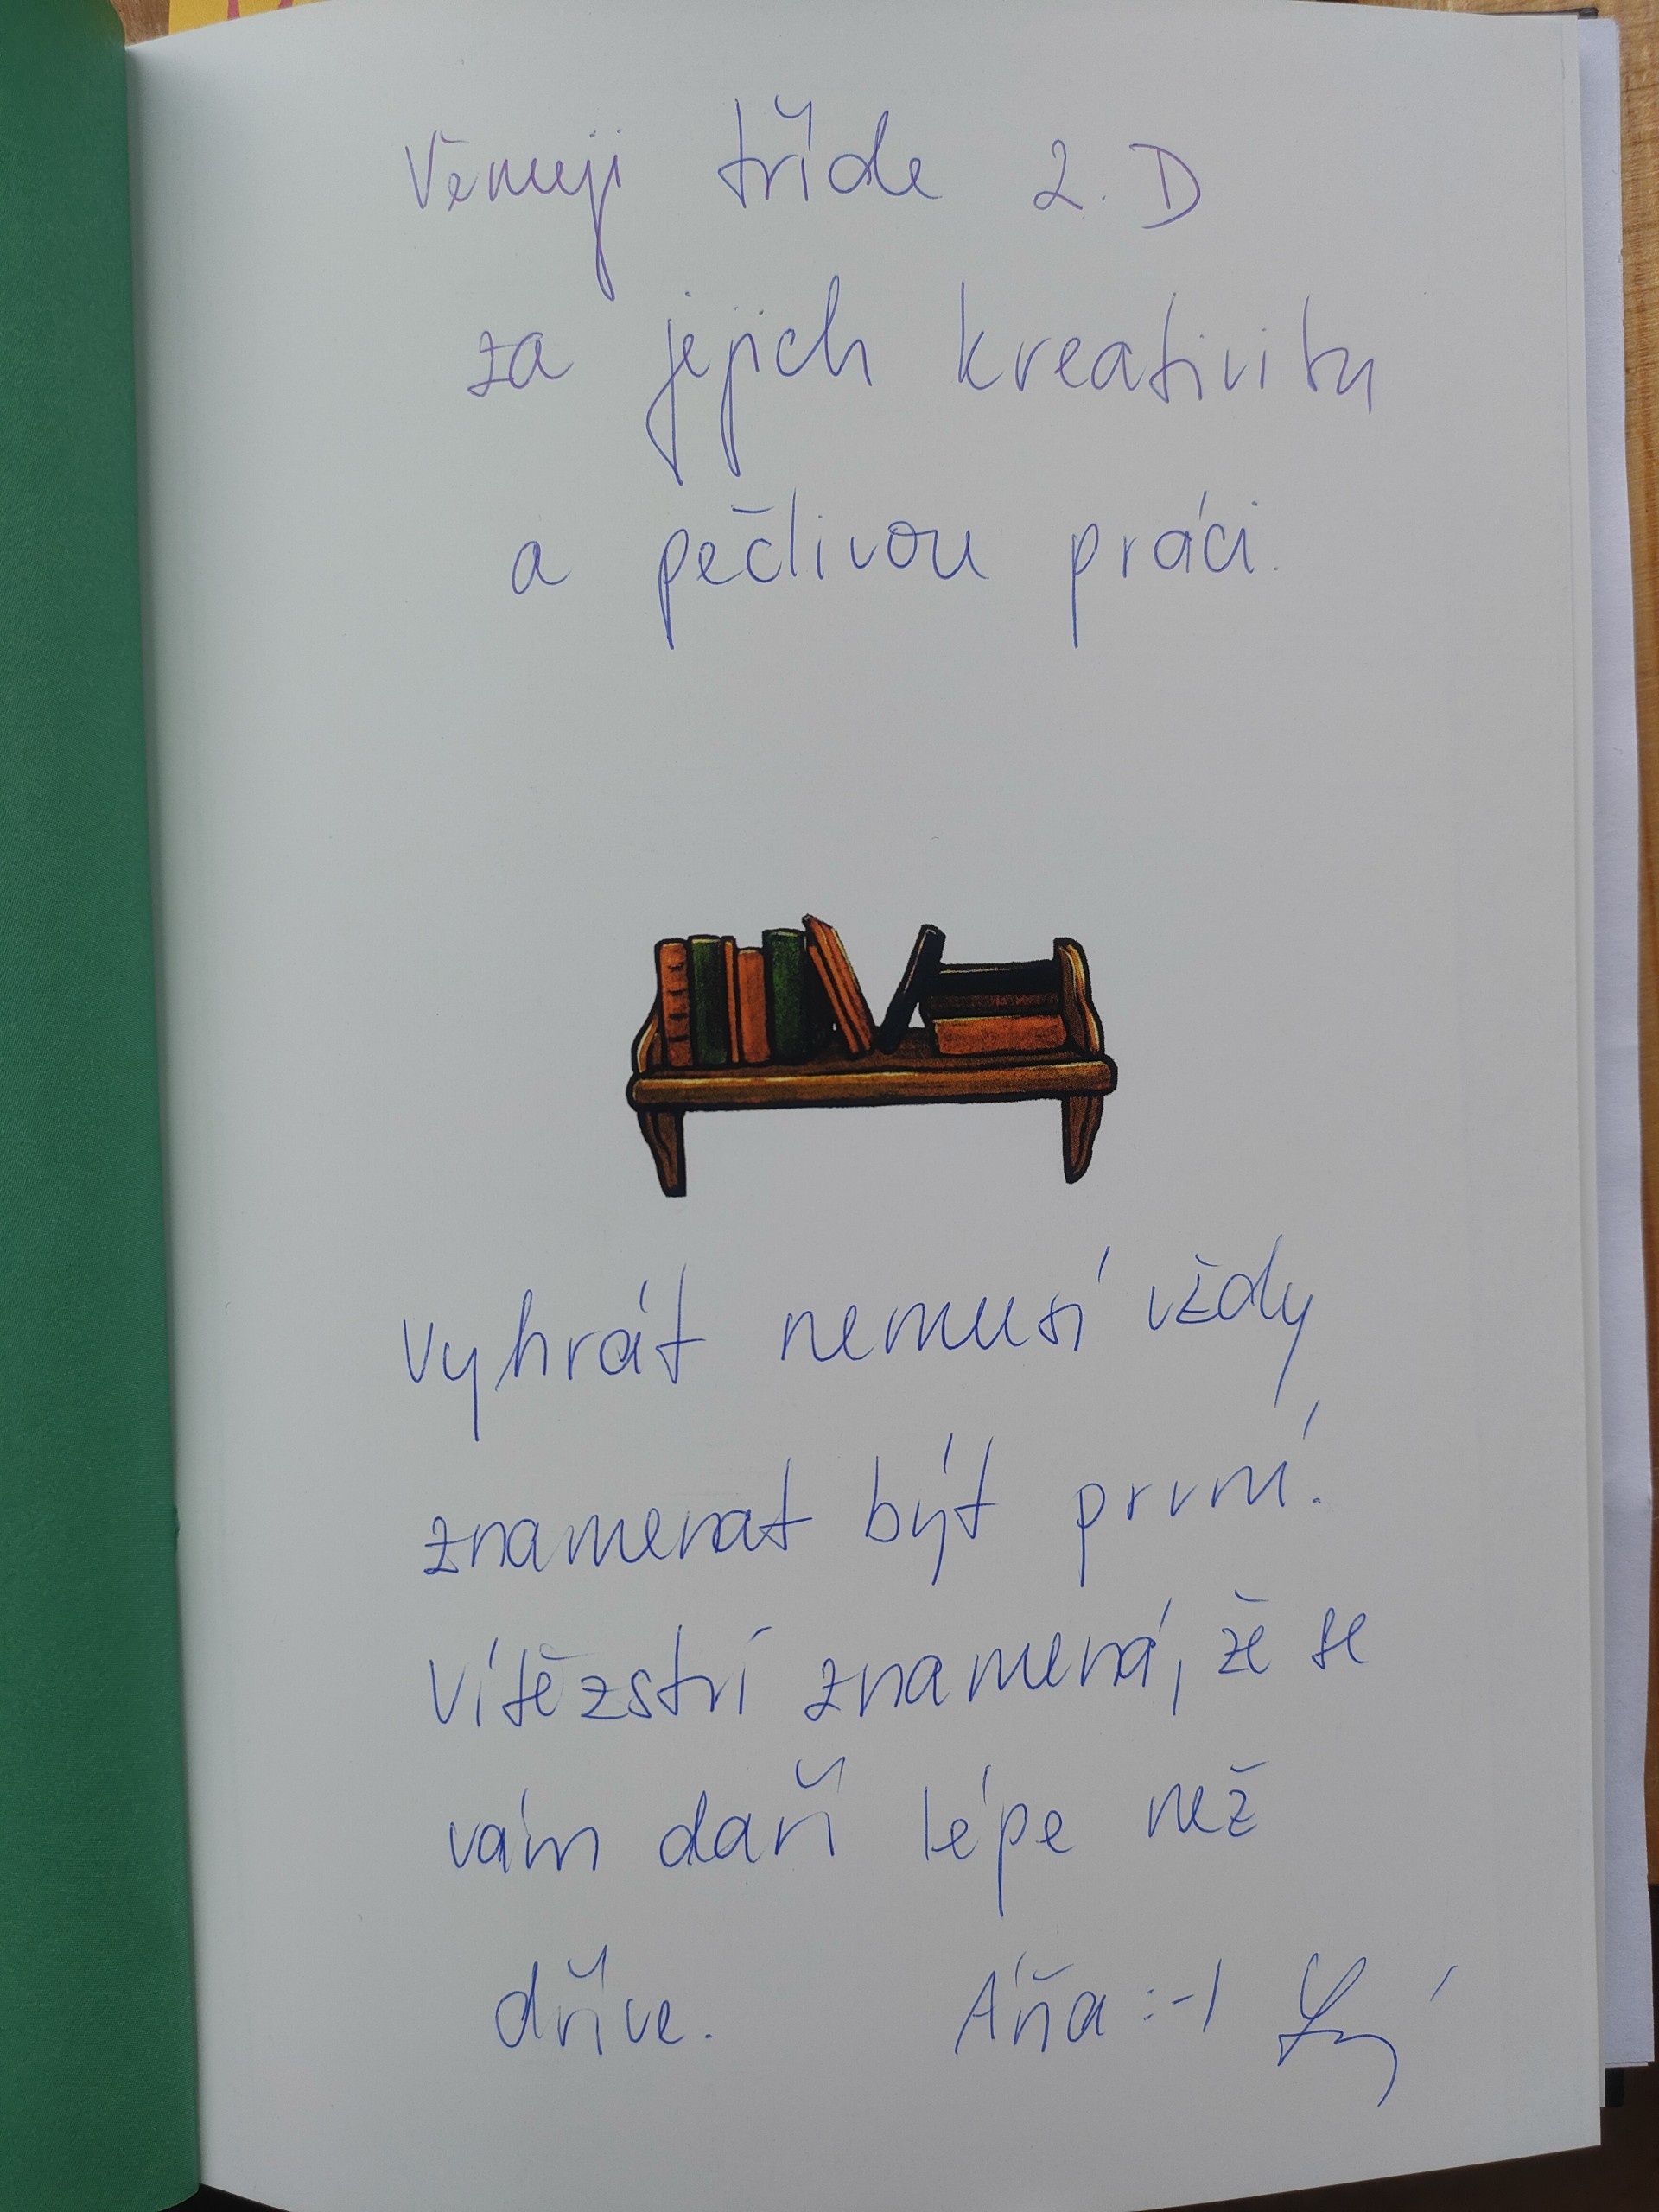 Věnuji třídě 2. D
za jejich kreativitu
a pečlivou práci.
Vyhrát nemusí vždy
znamenat být první.
Vítězství znamená, že se
vám daří lépe než
dříve. Áňa :-)